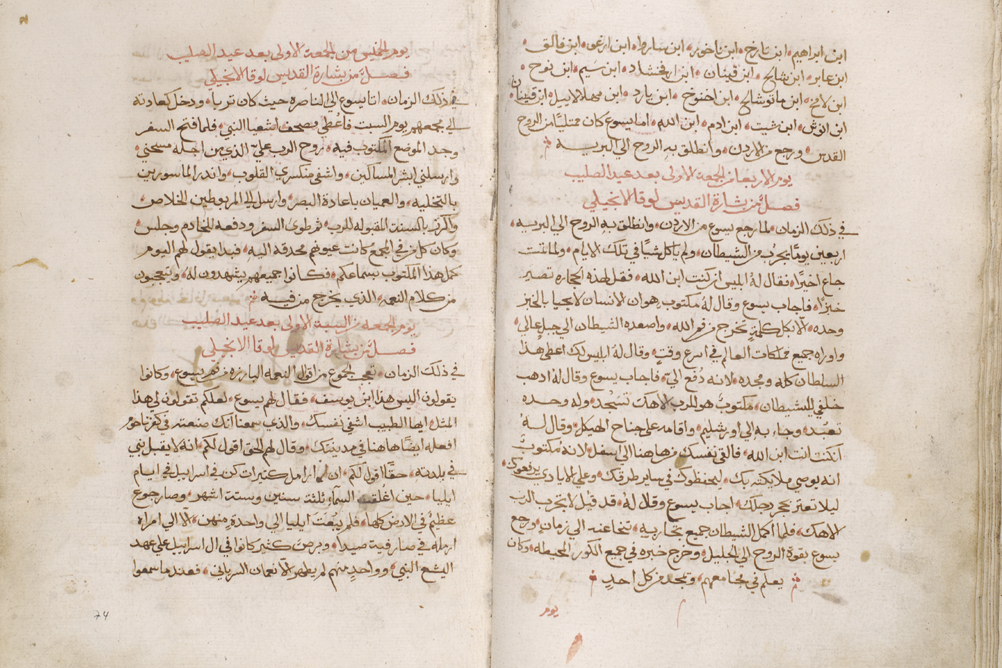 ابن ابراهيم ابن تارح ابن ناحور ابن ساروا ابن ارعو ابن فالق
ابن عابر ابن شالح ابن قينان ابن ارفخشد ابن سيم ابن نوح
ابن لامخ ابن ماتوشالح ابن اخنوخ ابن يارد ابن مهلالاييل ابن قينان
ابن انوش ابن شيت ابن ادم ابن الله اما يسوع كان ممتليًا من الروح
القدس ورجع من الاردن وانطلق به الروح الي البريه
يوم الاربعا من الجمعة الاولي بعد عيد الصليب
فصل من بشارة القديس لوقا الانجيلي
في ذلك الزمان لما رجع يسوع من الاردن وانطلق به الروح الي البريه
اربعين يومًا يجرب من الشيطان ولم ياكل شيًا في تلك الايام ولما تمت
جاع اخيرًا فقال لهُ ابليس ان كنت ابن الله فقل لهذه الحجاره تصير
خبزًا فاجاب يسوع وقال لهُ مكتوب هو ان الانسان لا يحيا بالخبز
وحده الا بكل كلمةٍ تخرج من فم الله واصعده الشيطان الي جبل عالي
واوراه جميع مملكات العالم في اسرع وقتٍ وقال لهُ ابليس لك اعطي هذا
السلطان كله ومجده لانه دُفع اليَّ فاجاب يسوع وقال لهُ اذهب
خلفي ايها الشيطان مكتوبٌ هو للرب الاهك تسجد وله وحده
تعبد وجا به الي اورشليم واقامه علي جناح الهيكل وقال لهُ
ان كنت انت ابن الله فالقي نفسك من هاهنا الي اسفل لانه مكتوبٌ
انه يوصي ملايكته بك ليحفظوك في ساير طرقك وعلي الايادي يرفعوك
ليلا تعثر بحجر رجلك اجاب يسوع وقال لهُ قد قيل لا تجرب الرب
الاهك فلما اكمل الشيطان جميع تجاربه تنحا عنه الي زمانٍ ورجع
يسوع بقوة الروح الي الجليل وخرج خبره في جميع الكور المحيطه وكان
يعلم في مجامعهم ويمجد من كل احدٍ
يوم
يوم الخميس من الجمعة الاولي بعد عيد الصليب
فصل من بشارة القديس لوقا الانجيلي
في ذلك الزمان اتا يسوع الي الناصره حيث كان تربا ودخل كعادته
الي مجمعهم يوم السبت فاعطي مصحف اشعيا النبي فلما فتح السفر
وجد الموضع المكتوب فيه روح الرب علي الذي من اجله مسحني
وارسلني ابشر المساكين واشفي منكسري القلوب وانذر الماسورين
بالتخليه والعميان باعادة البصر وارسل الي المربوطين للخلاص
واكرز بالسنة المقبوله للرب ثم طوي السفر ودفعه للخادم وجلس
وكان كل من في الجمع كانت عيونهم محدقه اليه فبدا يقول لهم اليوم
كمل هذا المكتوب بسماعكم فكانوا جميعهم يشهدون لهُ ويتعجبون
من كلام النعمه الذي يخرج من فيه
يوم الجمعه من الاولي بعد عيد الصليب
فصل من بشارة القديس لوقا الانجيلي
في ذلك الزمان تعجب الجموع من اقوال النعمه البارزه من فم يسوع وكانوا
يقولون اليس هذا ابن يوسف فقال لهم يسوع لعلكم تقولون لي هذا
المثل ايها الطبيب اشفي نفسك والذي سمعنا انك صنعته في كفرناحوم
افعله ايضًا هاهنا في مدينتك وقال لهم الحق اقول لكم انه لا يقبل نبي
في بلدته حقًا اقول لكم ان ارامل كثيرات كن في اسراييل في ايام
ايليا حين اغلقت السمآء ثلثة سنين وستة اشهر وصار جوع
عظيمٌ في الارض كلها فلم يبعث ايليا الي واحدةٍ منهن الا الي امراة
ارمله في صارفية صيدا وبرص كثير كانوا في ال اسراييل علي عهد
اليشع النبي وواحدٍ منهم لم يطهر الا نعمان السرياني فعند ما سمعوا
74